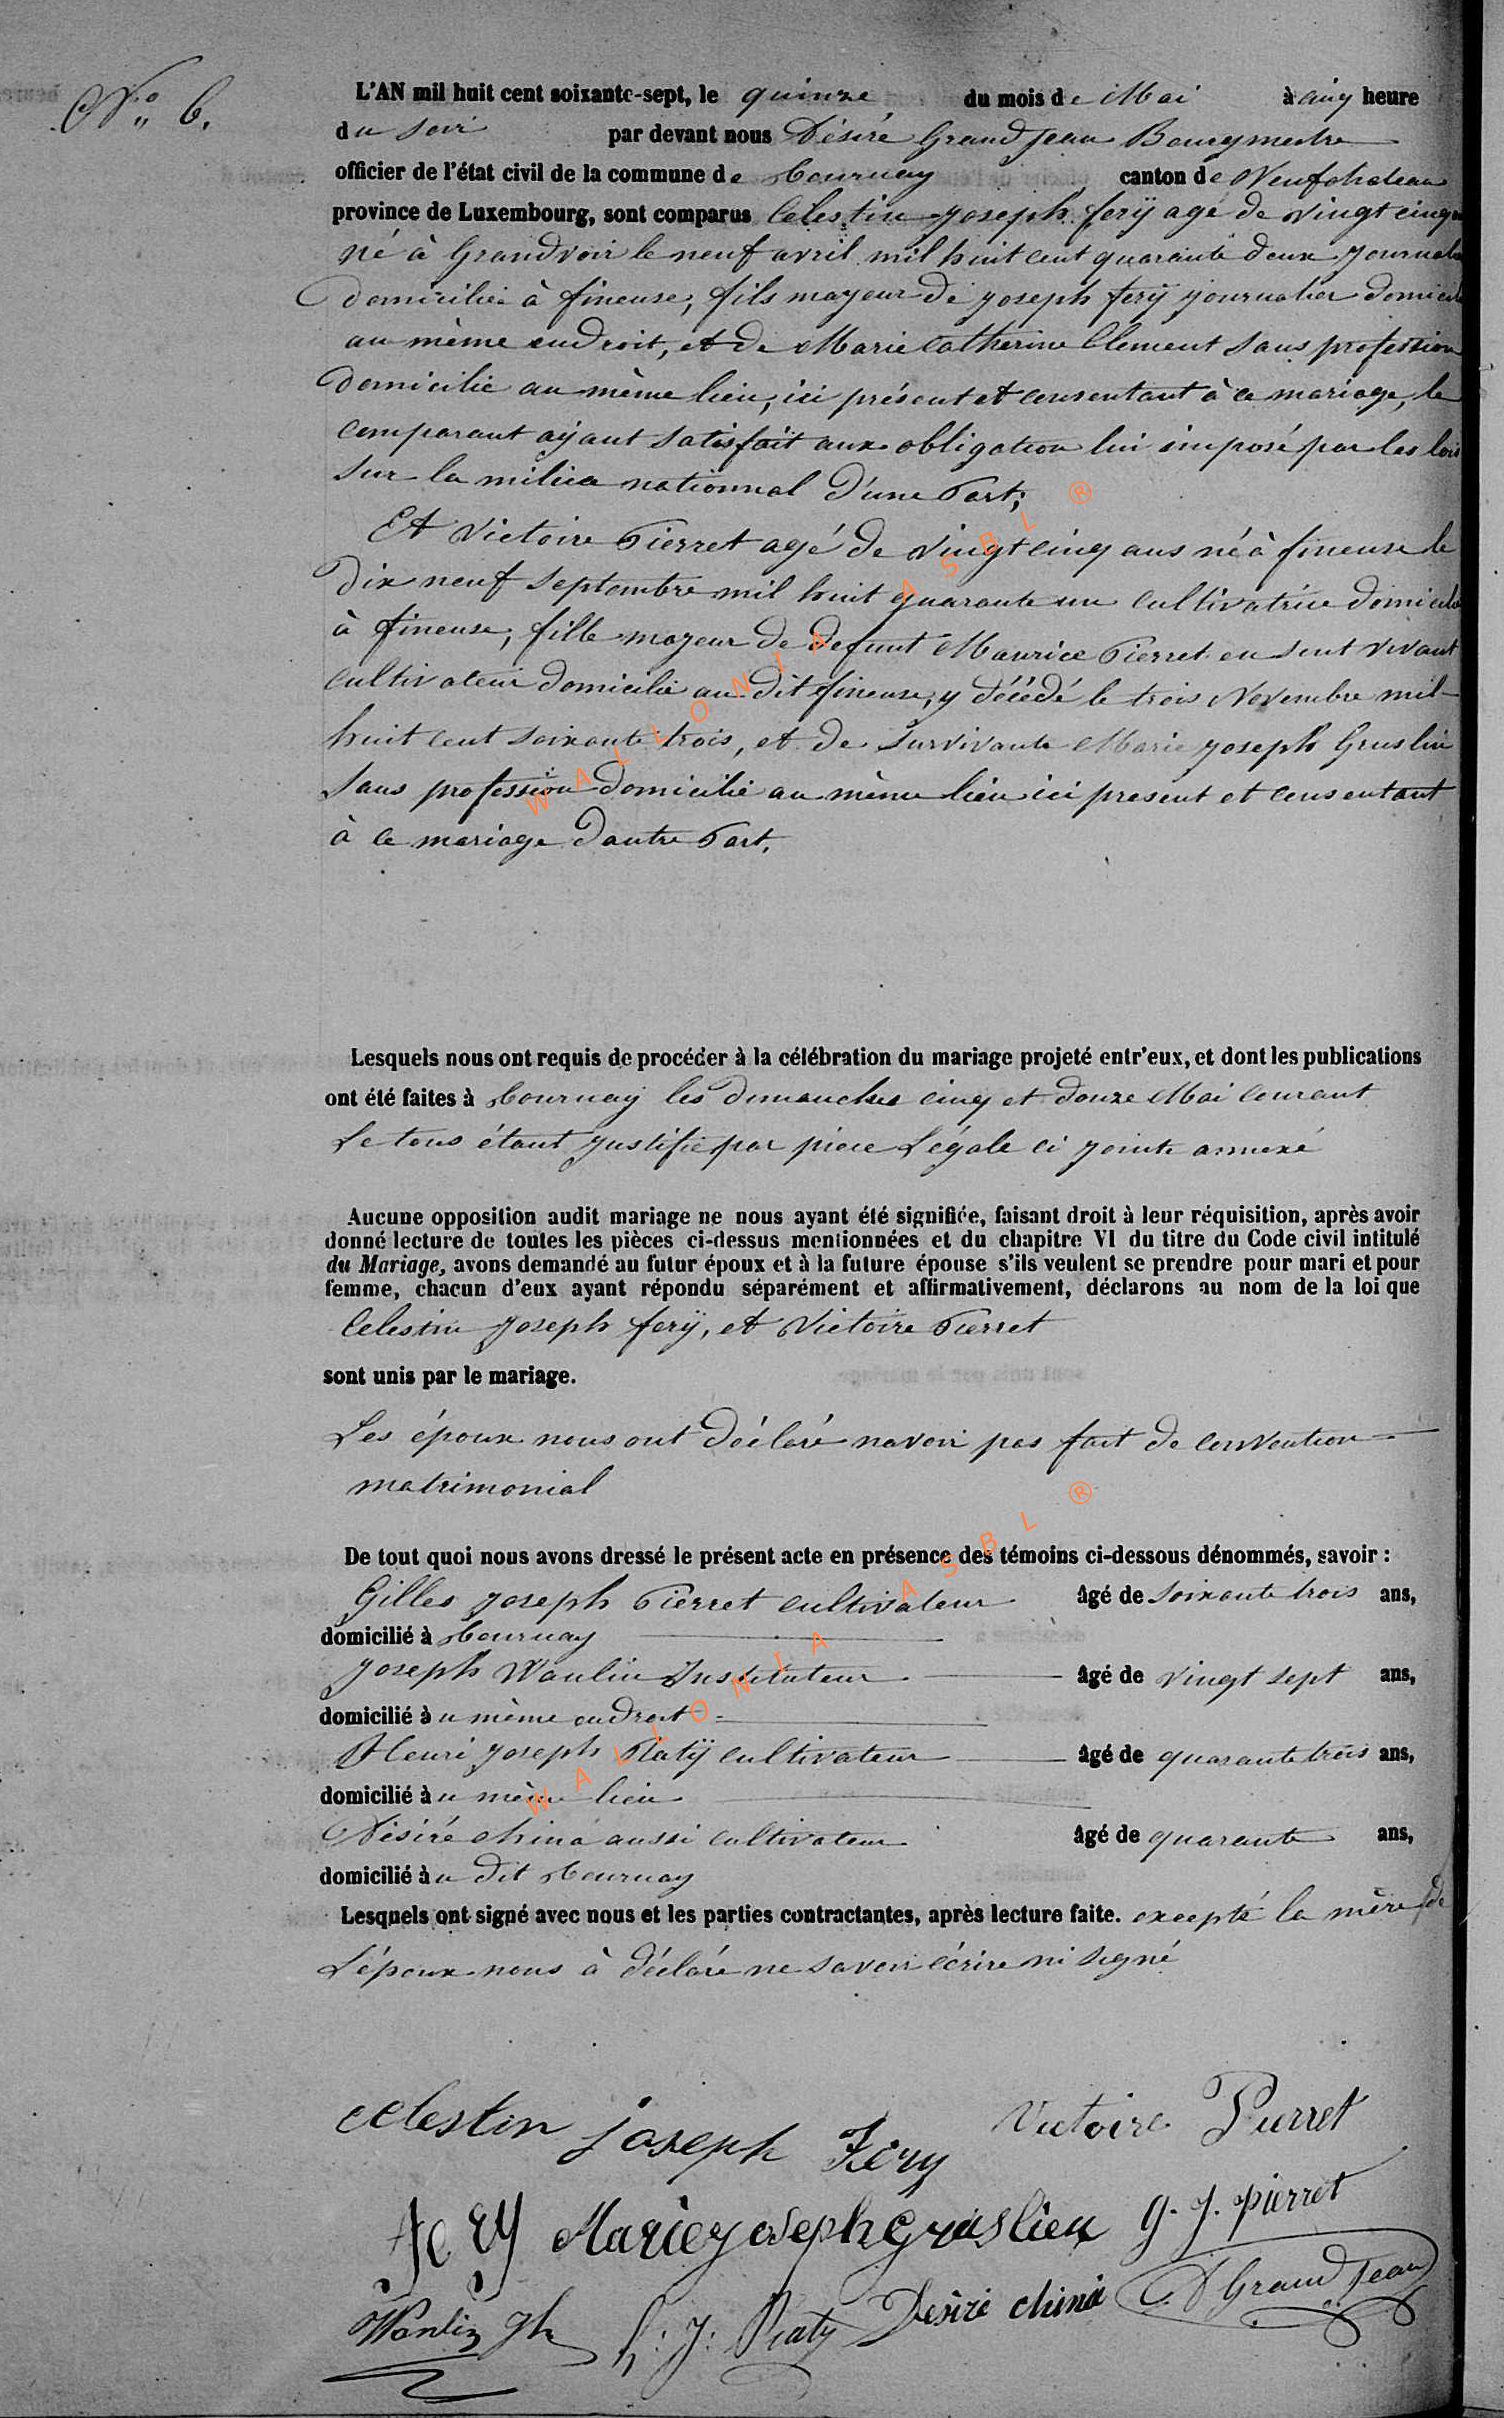 N° 6.
L'AN mil huit cent soixante-sept, le quinze du mois de Mai à cinq heure
du soir par devant nous Désiré Grandjean Bourgmestre
officier de l'état civil de la commune de Tournay canton de Neufchateau
province de Luxembourg, sont comparus Celestin Joseph ferÿ agé de vingt cinq
né à Grandvoir le neuf avril mil huit cent quarante deux journalier
domicilié à fineuse, fils mayeur de joseph ferÿ journalier domicilié
au même endroit, et de Marie Catherine Clement sans profession
domicilié au même lieu, ici présent et consentant à ce mariage, le
comparant aÿant satisfait aux obligation lui imposé par les lois
sur la milice nationnal d'une Part;
Et Victoire Pierret agé de vingt cinq ans né à fineuse le
dix neuf septembre mil huit quarante un cultivatrice domicilié
à fineuse, fille mayeur de defunt Maurice Pierret en sont vivant
cultivateur domicilié au dit fineuse, y décédé le trois Novembre mil
huit cent soixante trois, et de survivante Marie joseph Gruslin
sans profession domicilié au même lieu ici present et consentant
à ce mariage dautre Part.
Lesquels nous ont requis de procéder à la célébration du mariage projeté entr'eux, et dont les publications
ont été faites à Tournay les dimanches cinq et douze Mai courant
Le tous étant justifié par piece Légale ci jointe annexé
Aucune opposition audit mariage ne nous ayant été signifiée, faisant droit à leur réquisition, après avoir
donné lecture de toutes les pièces ci-dessus mentionnées et du chapitre VI du titre du Code civil intitulé
du Mariage, avons demandé au futur époux et à la future épouse s'ils veulent se prendre pour mari et pour
femme, chacun d'eux ayant répondu séparément et affirmativement, déclarons au nom de la loi que
Celestin Joseph ferÿ, et Victoire Pierret
sont unis par le mariage.
Les époux nous ont déclaré navoir pas fait de convention
matrimonial
De tout quoi nous avons dressé le présent acte en présence des témoins ci-dessous dénommés, savoir :
Gilles joseph Pierret cultivateur âgé de soixante trois ans,
domicilié à Tournay
Joseph Wanlin Instituteur âgé de vingt sept ans,
domicilié au même endroit
Henri joseph Piatÿ cultivateur âgé de quarante trois ans,
domicilié au même lieu
Désiré china aussi cultivateur âgé de quarante ans,
domicilié au dit Tournay
Lesquels ont signé avec nous et les parties contractantes, après lecture faite. excepté la mère de
L'époux nous à déclaré ne savoir écrire ni signé
Celestin joseph Féry Victoire Pierret
fery Marie joseph Gruslien G. J. pierret
Wanlin Jh h: J: Piaty Désiré china D Grandjean
WALLONIA ASBL ®
WALLONIA ASBL ®